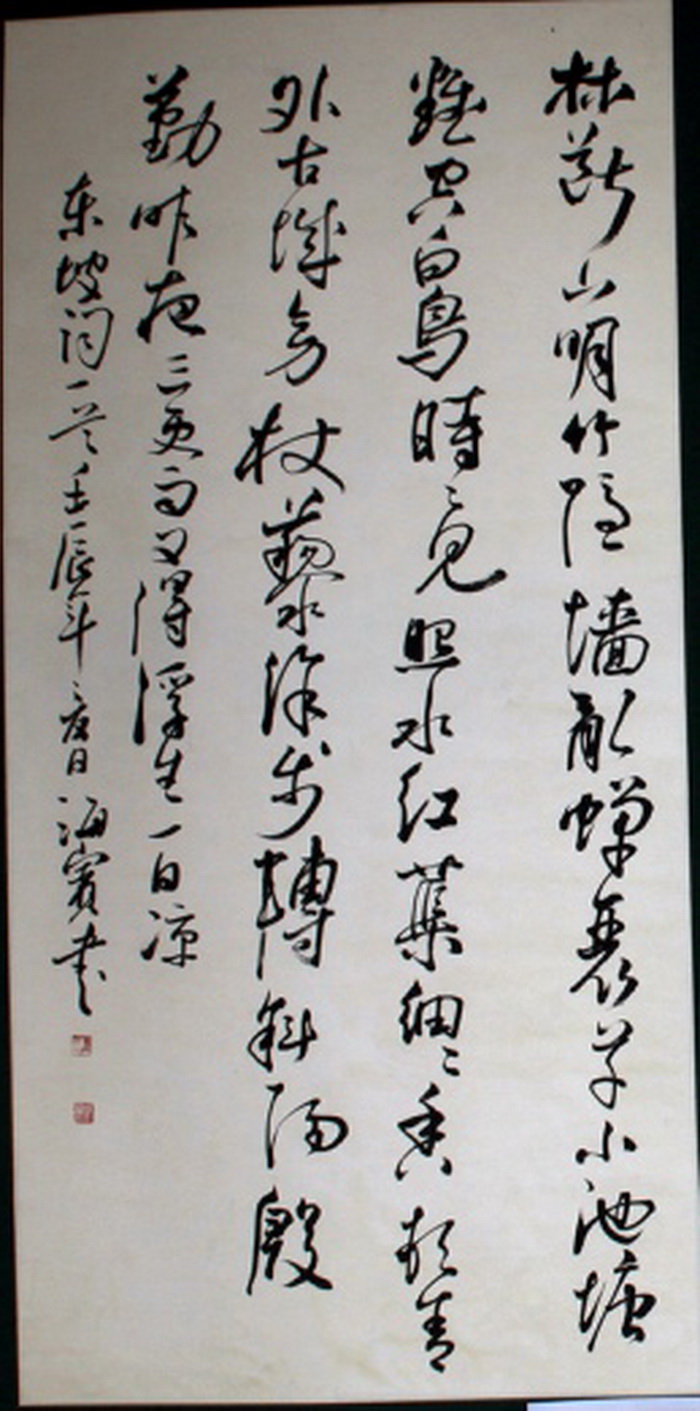 林斷山明竹隐墙亂蝉衰草小池塘
翻空白鳥時々见照水红蕖細々香村舍
外古城旁杖藜徐步轉斜陽殷
勤昨夜三更雨又得浮生一日凉
东坡词一首壬辰年之夏日海賓书